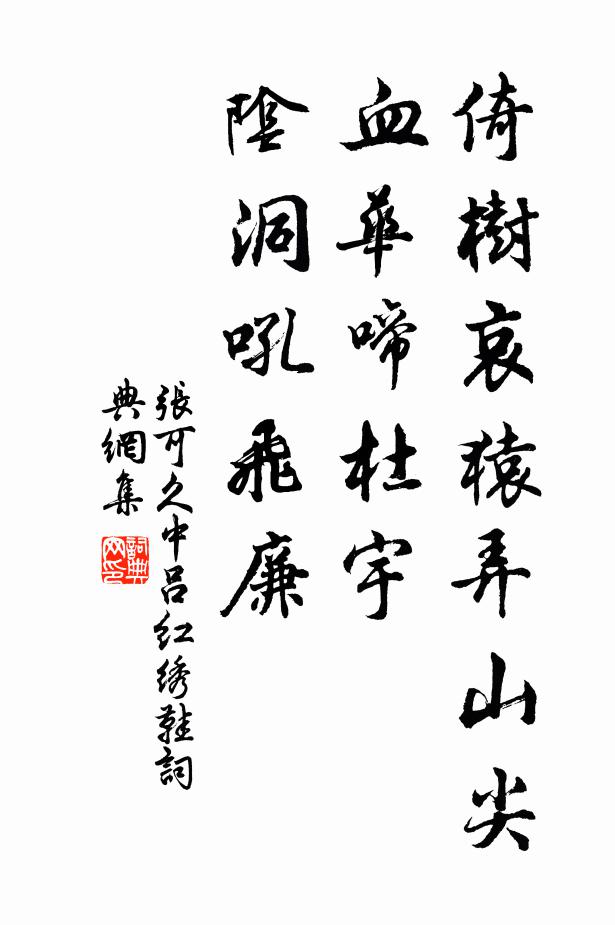 倚樹哀猿弄山尖
血華啼杜宇
陰洞吼飛廉
張可久中呂紅绣鞋詞
典網集
詞典
网印